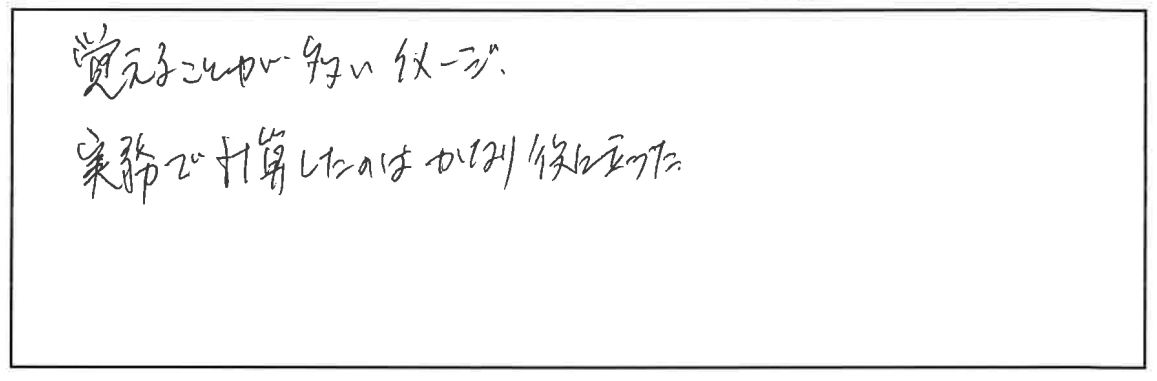 覚えることが多いイメージ.
実務で計算したのはかなり役に立った.